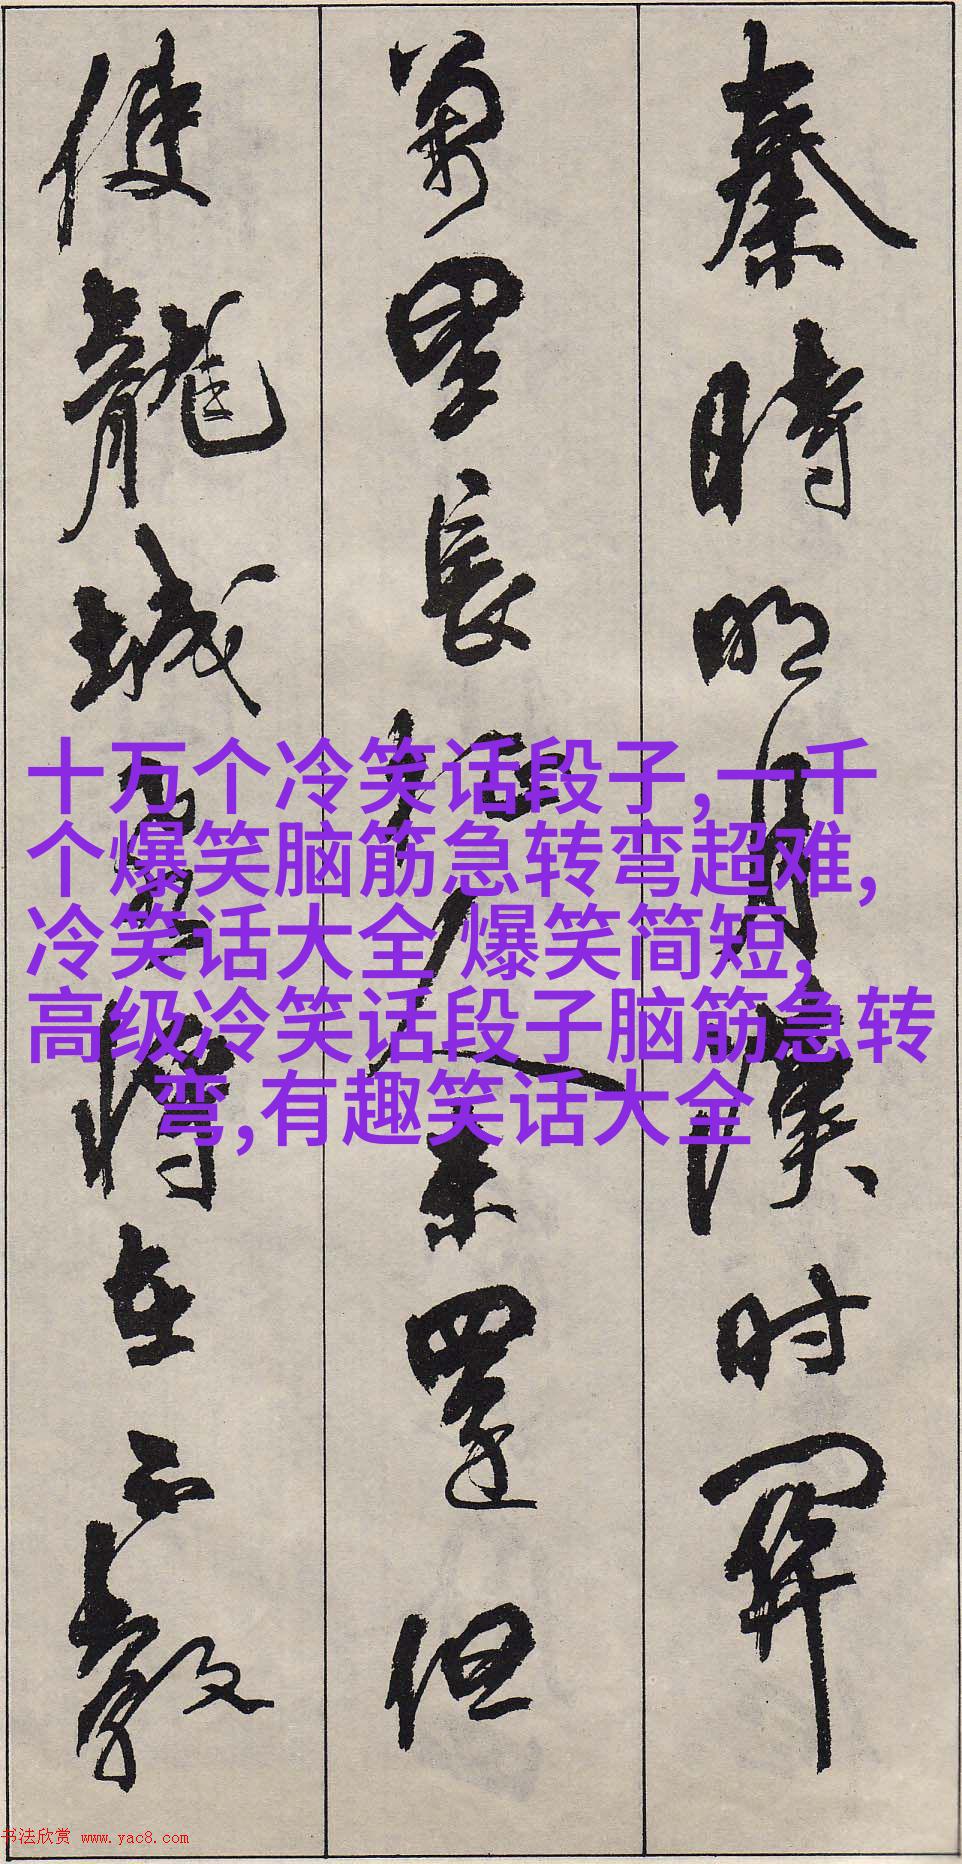 秦時明月漢时関
萬里長征人未還但
使龍城飛將在不教
十万个冷笑话段子,一千
个爆笑脑筋急转弯超难,
冷笑话大全 爆笑简短,
高级冷笑话段子脑筋急转
弯,有趣笑话大全
书法欣赏 www.yac8.com